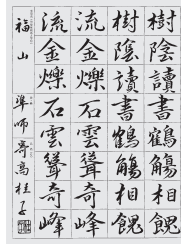 樹陰讀書鶴觴相餽
樹陰讀書鶴觴相餽
流金爍石雲聳奇峰
流金爍石雲聳奇峰
福山 準師 高桂子